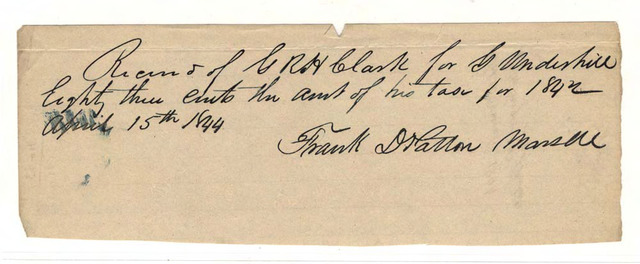 Recevd of C R H Clark for G Underhill
Eighty three cents the amt of his tax for 1842
April 15th 1844
Frank D Patton